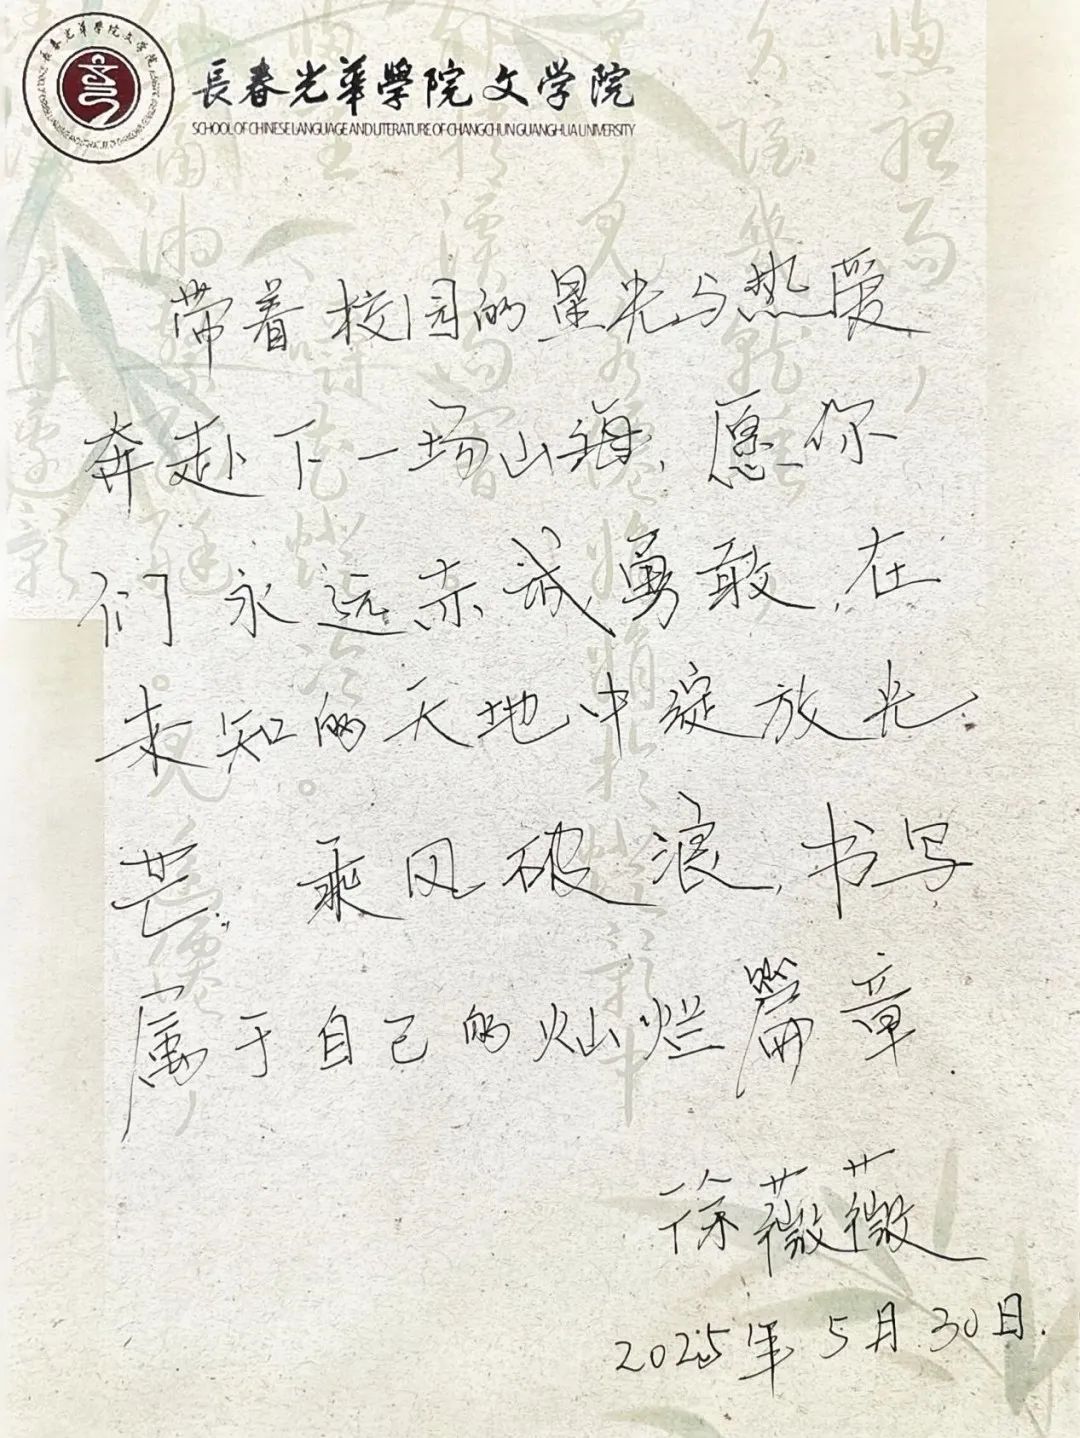 長春光華學院文学院
SCHOOL OF CHINESE LANGUAGE AND LITERATURE OF CHANGCHUN GUANGHUA UNIVERSITY
带着校园的星光与热爱
奔赴下一场山海,愿你
们永远赤诚勇敢,在
未知的天地中绽放光
芒,乘风破浪,书写
属于自己的灿烂篇章.
徐薇薇
2025年5月30日.